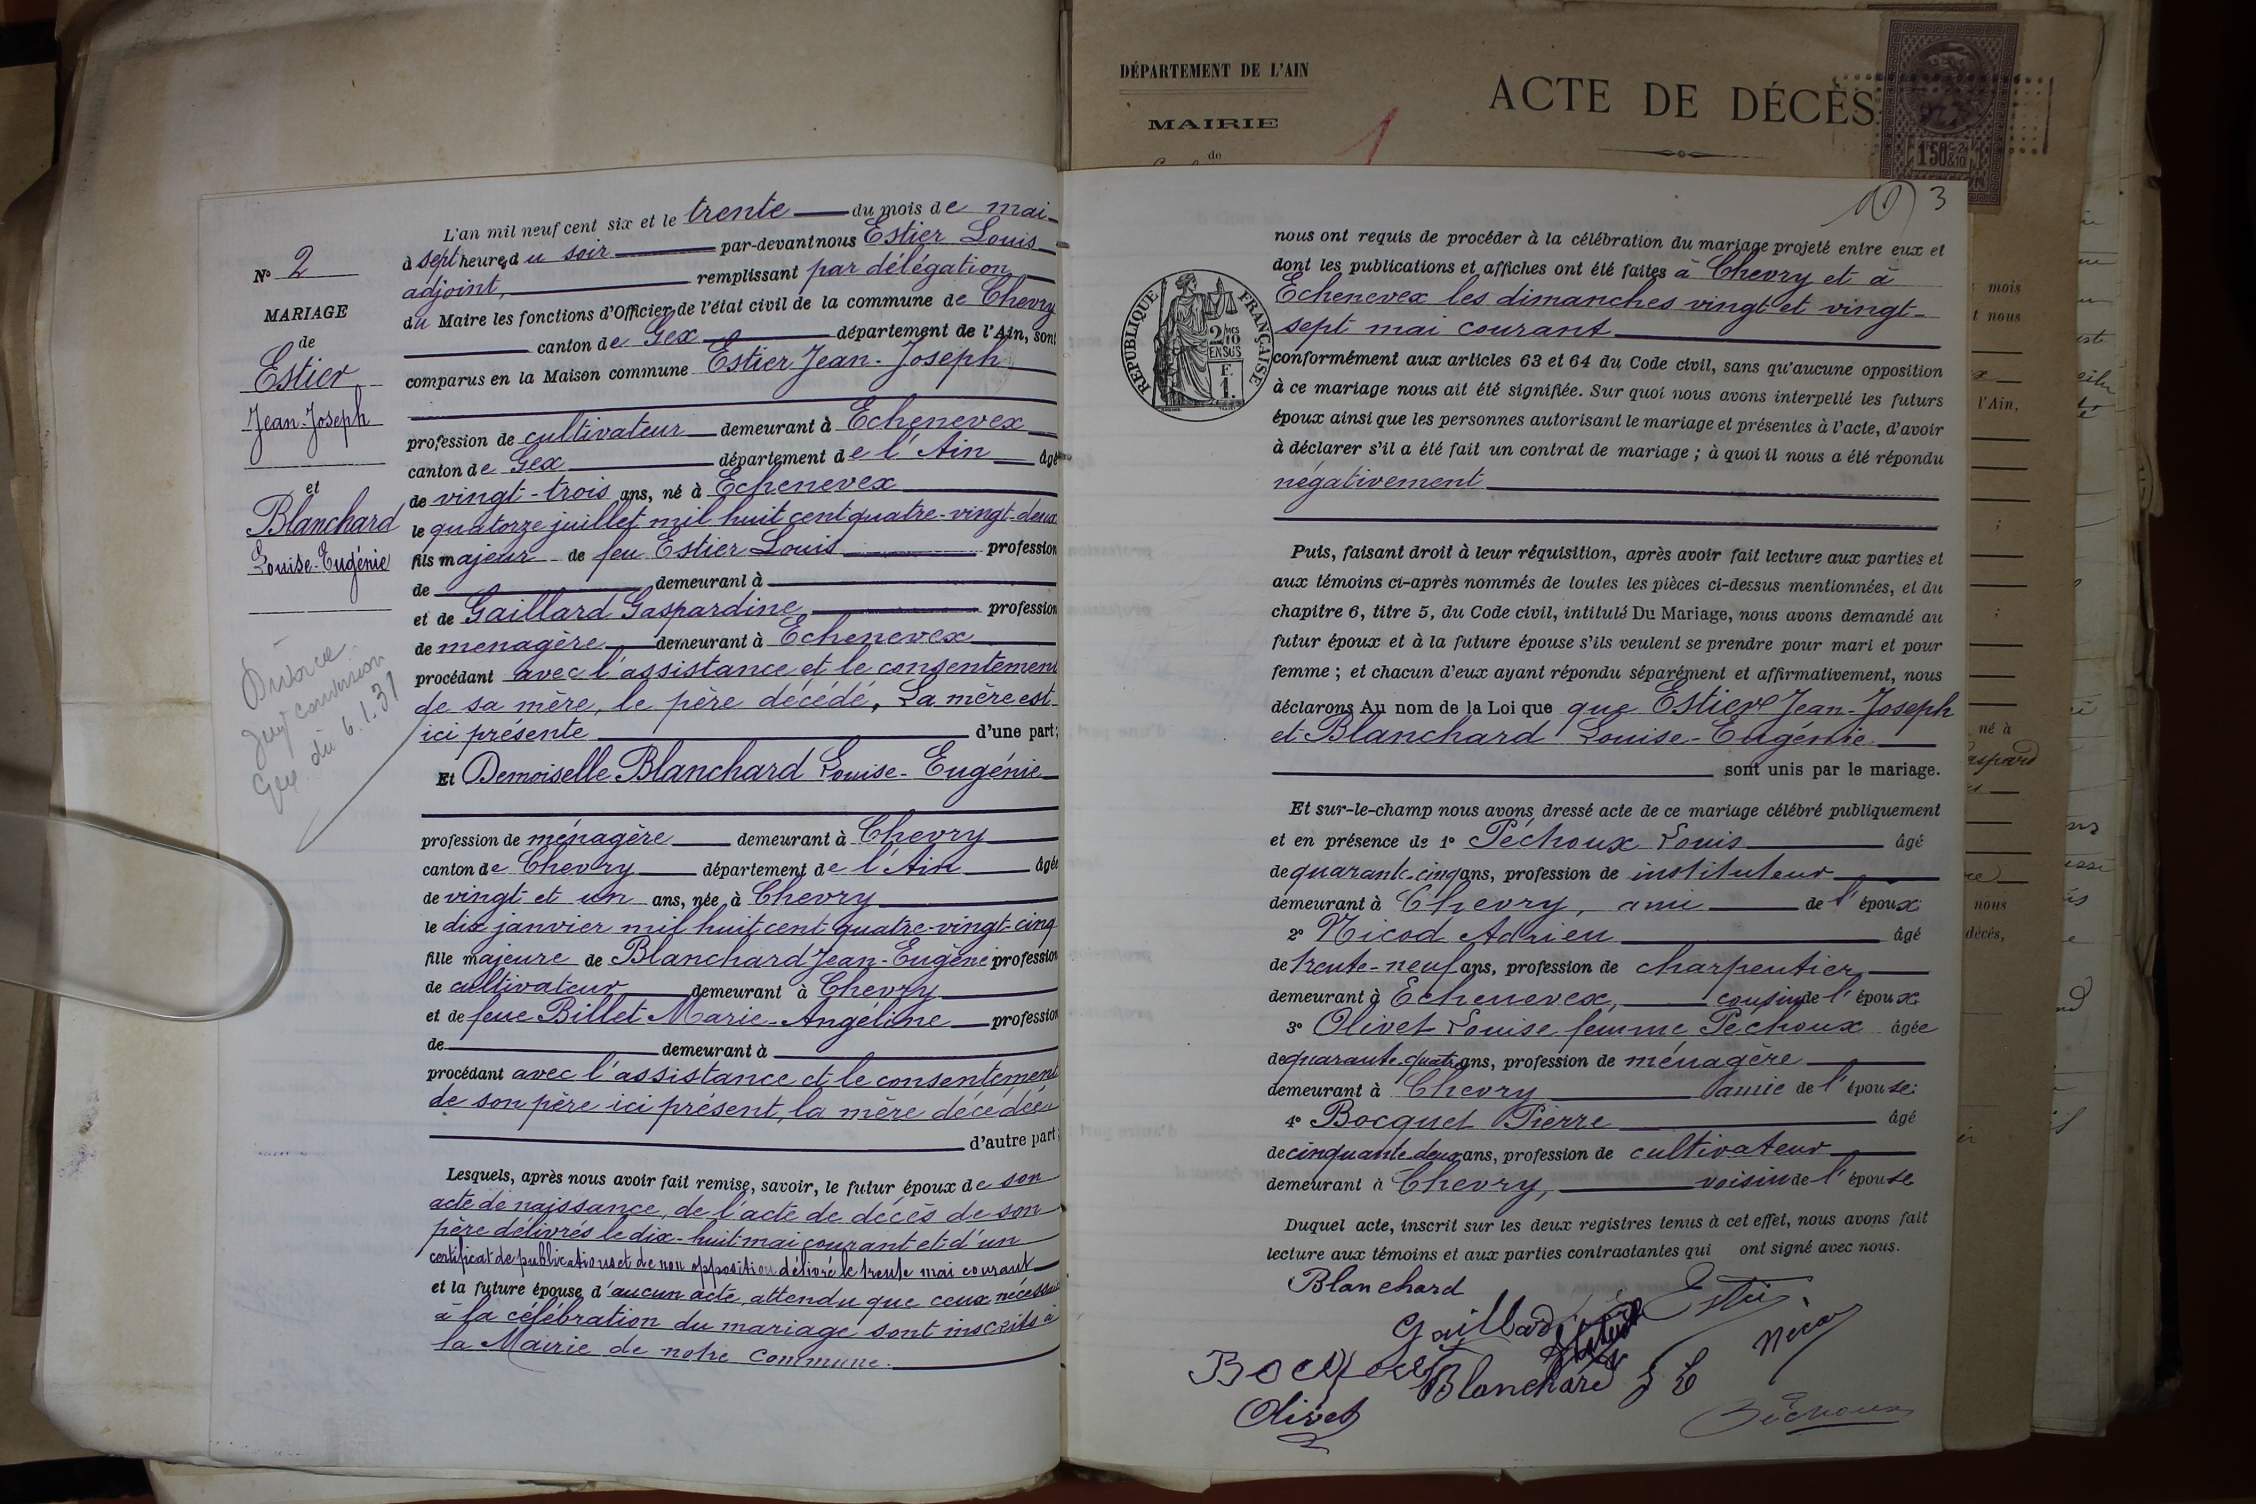 N° 2
MARIAGE
de
Estier
Jean-Joseph
et
Blanchard
Louise-Eugénie
Divorce
Jugt conversion
Gex du 6.1.31
L'an mil neuf cent six et le trente du mois de mai
à sept heures du soir par-devant nous Estier Louis
adjoint, remplissant par délégation
du Maire les fonctions d'Officier de l'état civil de la commune de Chevry
canton de Gex département de l'Ain, sont
comparus en la Maison commune Estier Jean-Joseph
profession de cultivateur demeurant à Echenevex
canton de Gex département de l'Ain âgé
de vingt-trois ans, né à Echenevex
le quatorze juillet mil huit cent quatre-vingt-deux
fils majeur de feu Estier Louis profession
de demeurant à
et de Gaillard Gaspardine profession
de menagère demeurant à Echenevex
procédant avec l'assistance et le consentement
de sa mère, le père décédé. La mère est
ici présente d'une part;
Et Demoiselle Blanchard Louise-Eugénie
profession de ménagère demeurant à Chevry
canton de Chevry département de l'Ain âgée
de vingt et un ans, née à Chevry
le dix janvier mil huit cent quatre-vingt-cinq
fille majeure de Blanchard Jean-Eugène profession
de cultivateur demeurant à Chevry
et de feue Billet Marie-Angéline profession
de demeurant à
procédant avec l'assistance et le consentement
de son père ici présent, la mère décédée
d'autre part;
Lesquels, après nous avoir fait remise, savoir, le futur époux de son
acte de naissance, de l'acte de décès de son
père délivrés le dix-huit mai courant et d'un
certificat de publications et de non opposition délivré le trente mai courant
et la future épouse d'aucun acte, attendu que ceux nécessai
à la célébration du mariage sont inscrits à
la Mairie de notre commune.
DÉPARTEMENT DE L'AIN
MAIRIE
de
1
ACTE DE DÉCÈS
1F50
3
RÉPUBLIQUE FRANÇAISE
2/10 EN SUS
F. 1.
nous ont requis de procéder à la célébration du mariage projeté entre eux et
dont les publications et affiches ont été faites à Chevry et à
Echenevex les dimanches vingt et vingt-
sept mai courant
conformément aux articles 63 et 64 du Code civil, sans qu'aucune opposition
à ce mariage nous ait été signifiée. Sur quoi nous avons interpellé les futurs
époux ainsi que les personnes autorisant le mariage et présentes à l'acte, d'avoir
à déclarer s'il a été fait un contrat de mariage ; à quoi il nous a été répondu
négativement
Puis, faisant droit à leur réquisition, après avoir fait lecture aux parties et
aux témoins ci-après nommés de toutes les pièces ci-dessus mentionnées, et du
chapitre 6, titre 5, du Code civil, intitulé Du Mariage, nous avons demandé au
futur époux et à la future épouse s'ils veulent se prendre pour mari et pour
femme ; et chacun d'eux ayant répondu séparément et affirmativement, nous
déclarons Au nom de la Loi que que Estier Jean-Joseph
et Blanchard Louise-Eugénie
sont unis par le mariage.
Et sur-le-champ nous avons dressé acte de ce mariage célébré publiquement
et en présence de 1° Péchoux Louis âgé
de quarante-cinq ans, profession de instituteur
demeurant à Chevry, ami de l'époux
2° Nicod Adrien âgé
de trente-neuf ans, profession de charpentier
demeurant à Echenevex, cousin de l'époux
3° Olivet Louise femme Péchoux âgée
de quarante-quatre ans, profession de ménagère
demeurant à Chevry amie de l'épouse;
4° Bocquet Pierre âgé
de cinquante-deux ans, profession de cultivateur
demeurant à Chevry, voisin de l'épouse
Duquel acte, inscrit sur les deux registres tenus à cet effet, nous avons fait
lecture aux témoins et aux parties contractantes qui ont signé avec nous.
Blanchard
Gaillard
Estier
Nicod
Bocquet
Blanchard
Olivet
Péchoux
mois
nous
l'Ain,
né à
nous
décès,